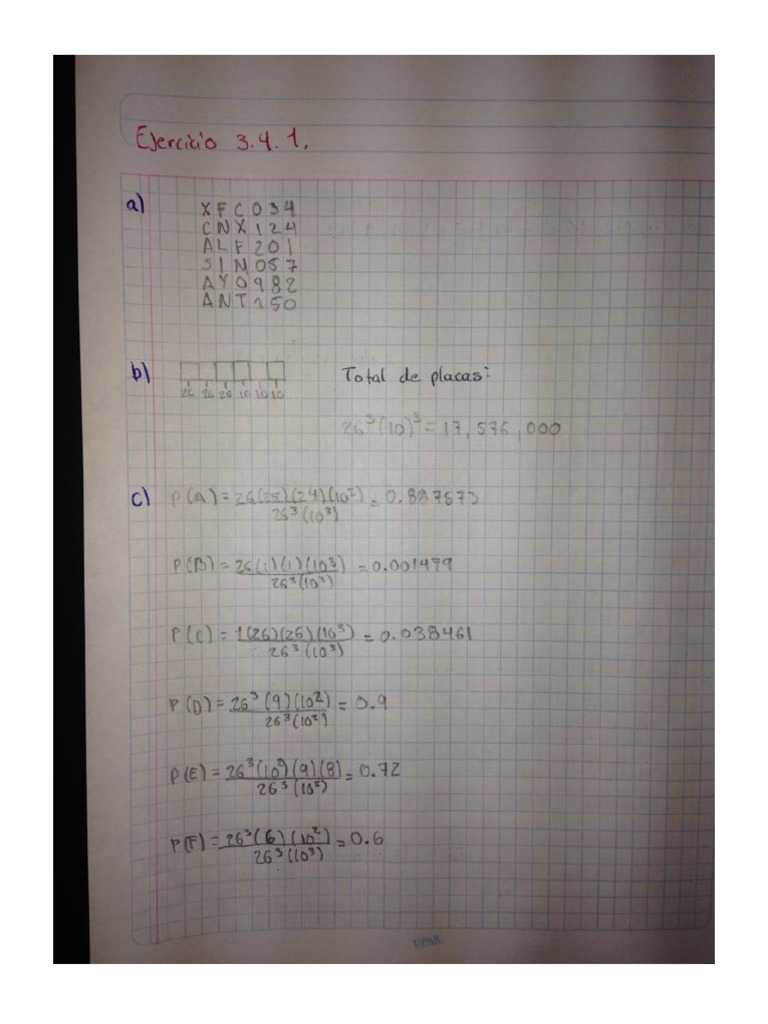 Ejercicio 3.4.1.
a)
XFC034
CNX124
ALF201
SIM057
AYO982
ANT150
b)
26 26 26 10 10 10
Total de placas:
26³(10)³=17,576,000
c) P(A) = 26(25)(24)(10²) / 26³(10³) = 0.887573
P(B) = 26(1)(1)(10³) / 26³(10³) = 0.001479
P(C) = 1(26)(26)(10³) / 26³(10³) = 0.038461
P(D) = 26³(9)(10²) / 26³(10²) = 0.9
P(E) = 26³(10)(9)(8) / 26³(10³) = 0.72
P(F) = 26³(6)(10²) / 26³(10³) = 0.6